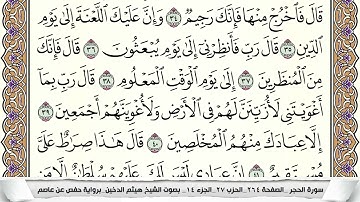 قَالَ فَٱخْرُجْ مِنْهَا فَإِنَّكَ رَجِيمٌ ٣٤ وَإِنَّ عَلَيْكَ ٱللَّعْنَةَ إِلَىٰ يَوْمِ
ٱلدِّينِ ٣٥ قَالَ رَبِّ فَأَنظِرْنِىٓ إِلَىٰ يَوْمِ يُبْعَثُونَ ٣٦ قَالَ فَإِنَّكَ
مِنَ ٱلْمُنظَرِينَ ٣٧ إِلَىٰ يَوْمِ ٱلْوَقْتِ ٱلْمَعْلُومِ ٣٨ قَالَ رَبِّ بِمَآ
أَغْوَيْتَنِى لَأُزَيِّنَنَّ لَهُمْ فِى ٱلْأَرْضِ وَلَأُغْوِيَنَّهُمْ أَجْمَعِينَ ٣٩
إِلَّا عِبَادَكَ مِنْهُمُ ٱلْمُخْلَصِينَ ٤٠ قَالَ هَٰذَا صِرَٰطٌ عَلَىَّ
مُسْتَقِيمٌ ٤١ إِنَّ عِبَادِى لَيْسَ لَكَ عَلَيْهِمْ سُلْطَٰنٌ إِلَّا مَنِ
سورة الحجر_الصفحة ٢٦٤_الحزب ٢٧_الجزء ١٤_ بصوت الشيخ هيثم الدخين_برواية حفص عن عاصم